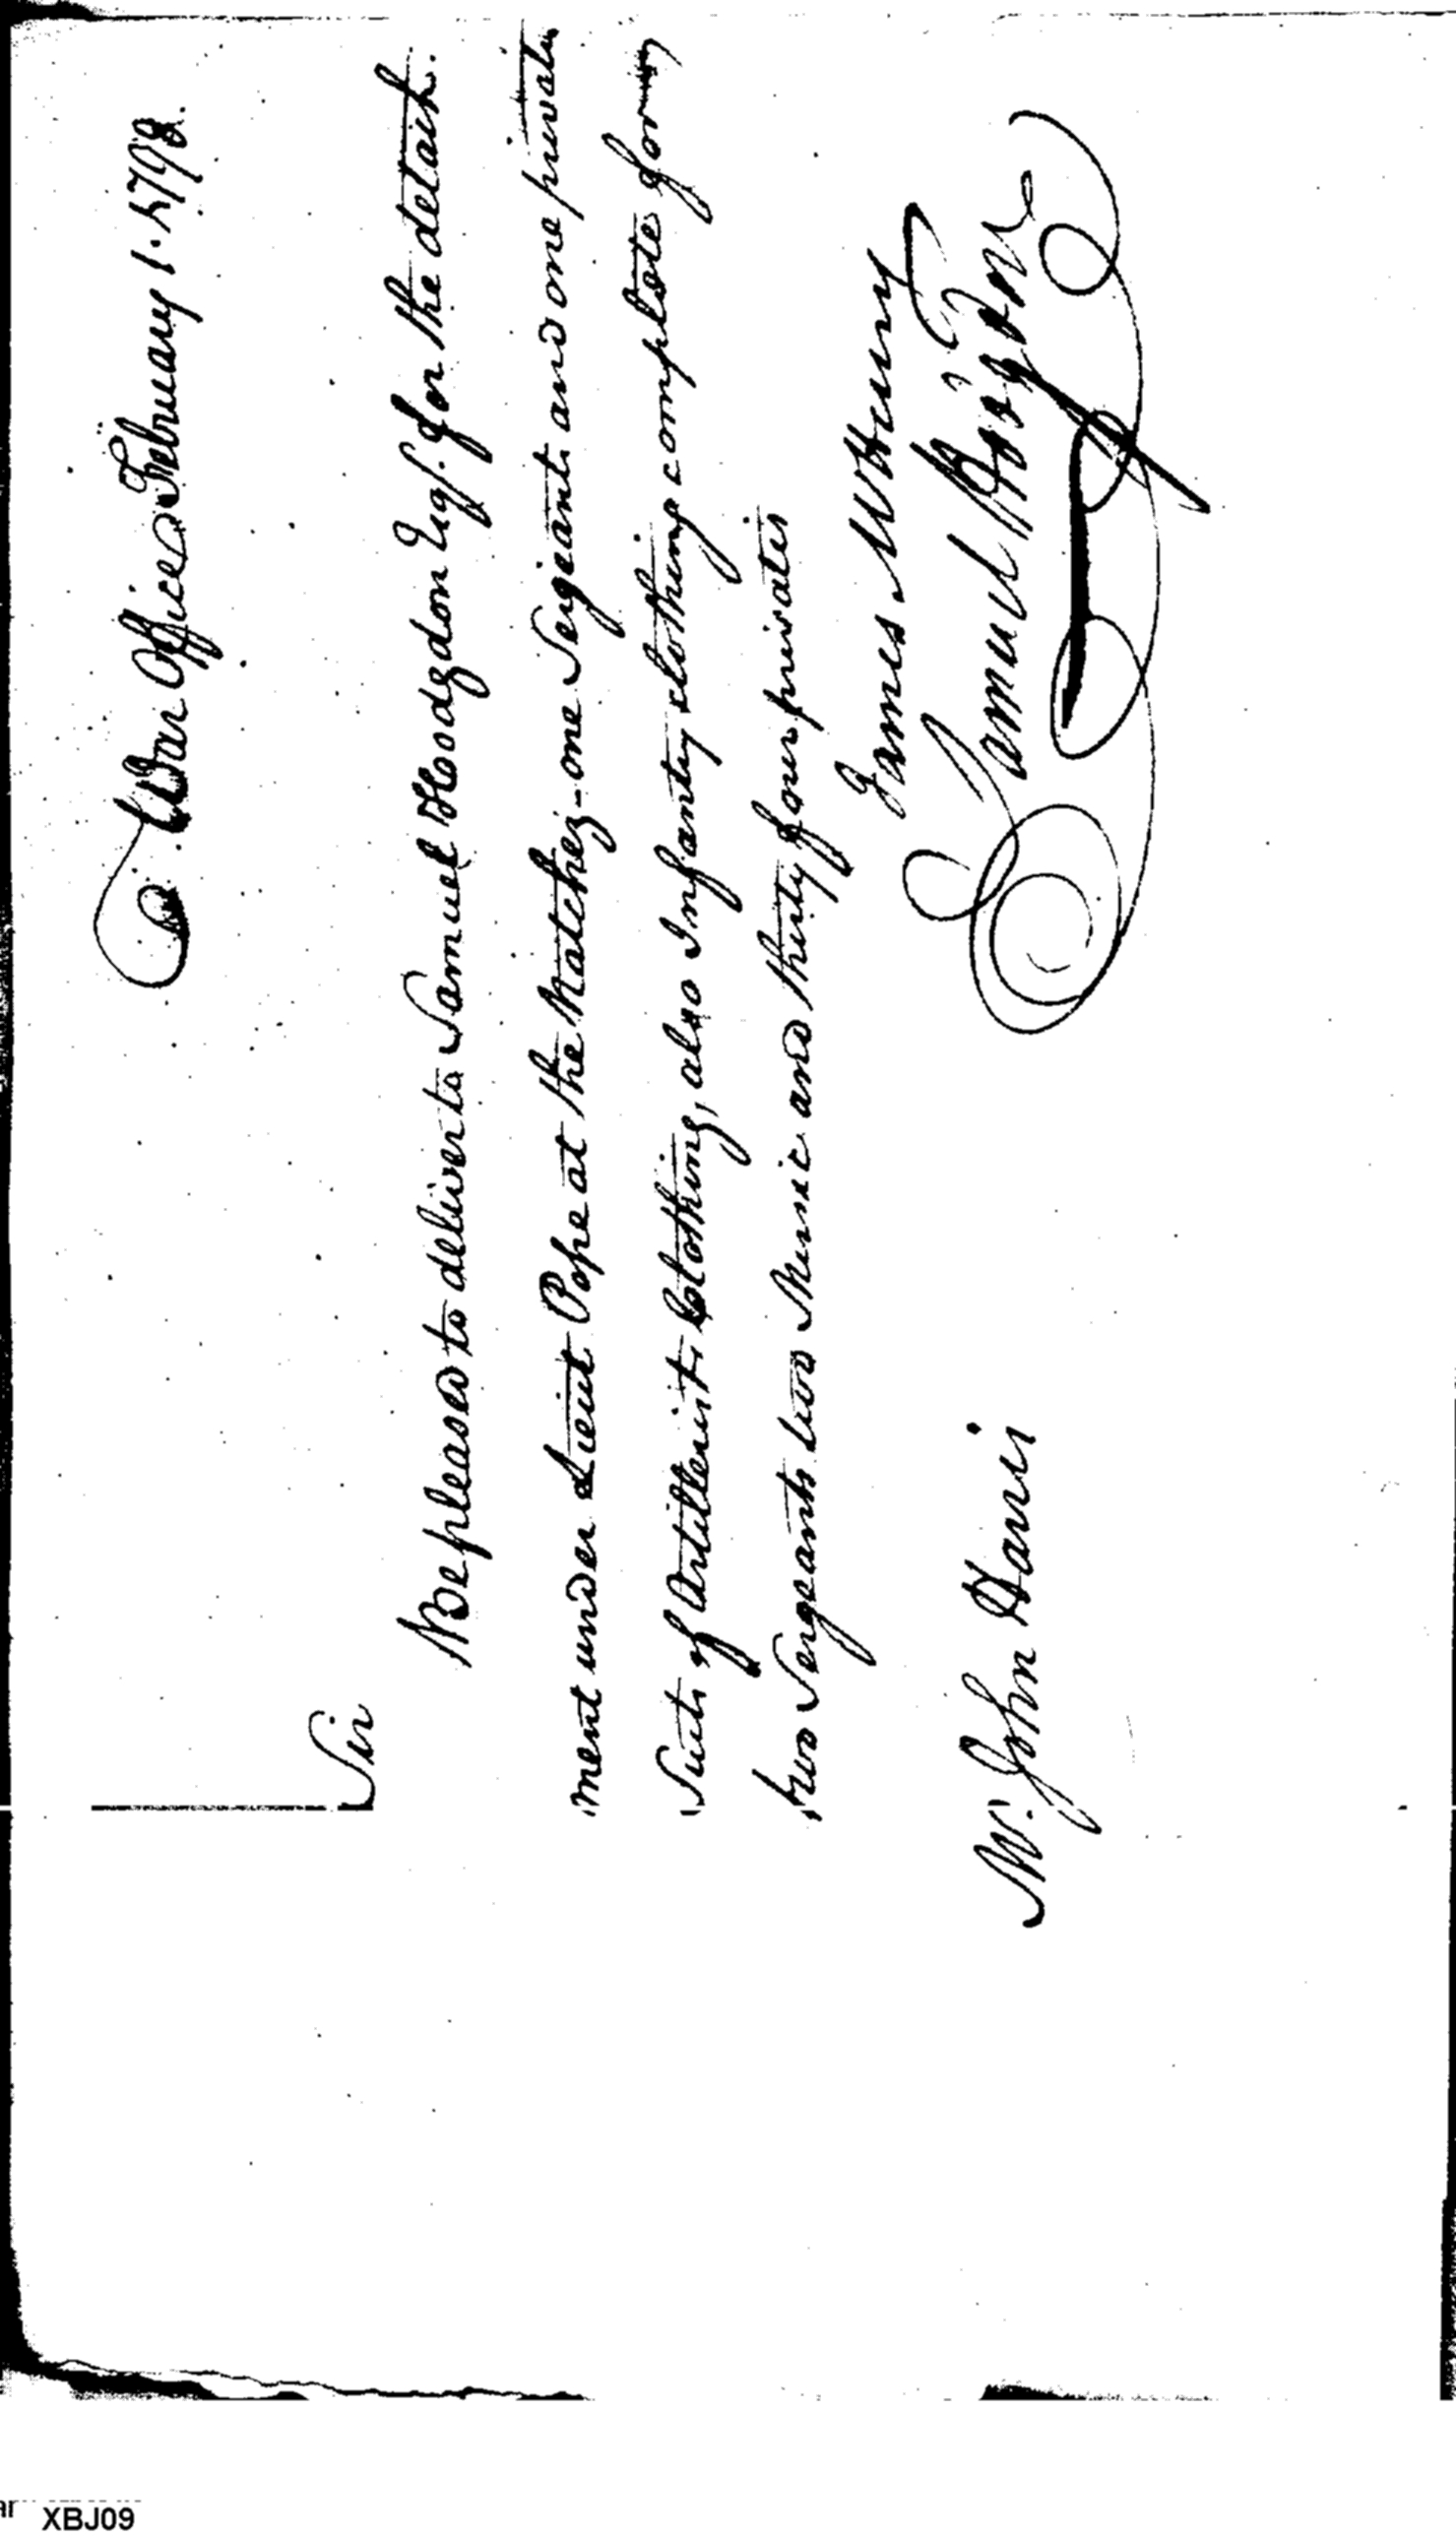 War Office February 1. 1798.
Sir
Be pleased to deliver to Samuel Hodgdon Esqr. for the detach-
ment under Lieut Pope at the Natchez - one Sergeants and one privates
Suits of Artillerists Clothing, also Infantry clothing complete for
two Sergeants two Music and thirty four privates
James McHenry
Samuel Hodgdon
Mr. John Harris
XBJ09